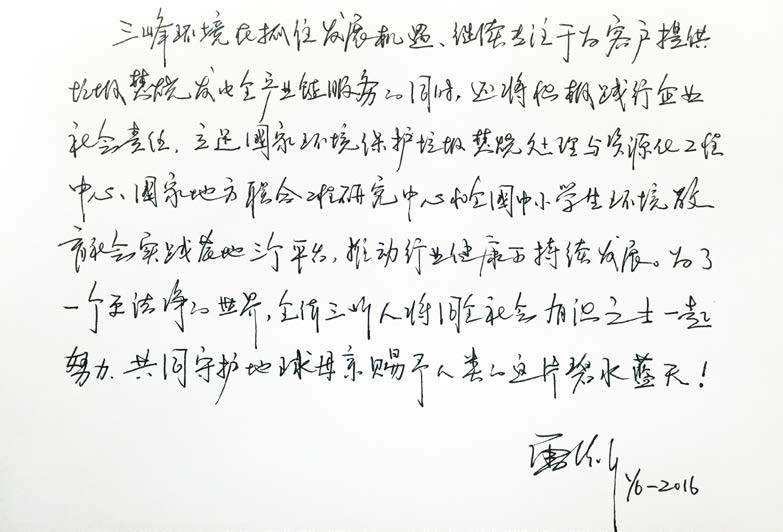 三峰环境在抓住发展机遇、继续专注于为客户提供
垃圾焚烧发电全产业链服务的同时，还将积极践行企业
社会责任，立足国家环境保护垃圾焚烧处理与资源化工程
中心、国家地方联合工程研究中心和全国中小学生环境教
育社会实践基地三个平台，推动行业健康可持续发展。为了
一个更洁净的世界，全体三峰人将同全社会有识之士一起
努力，共同守护地球母亲赐予人类的这片碧水蓝天！
1/6-2016